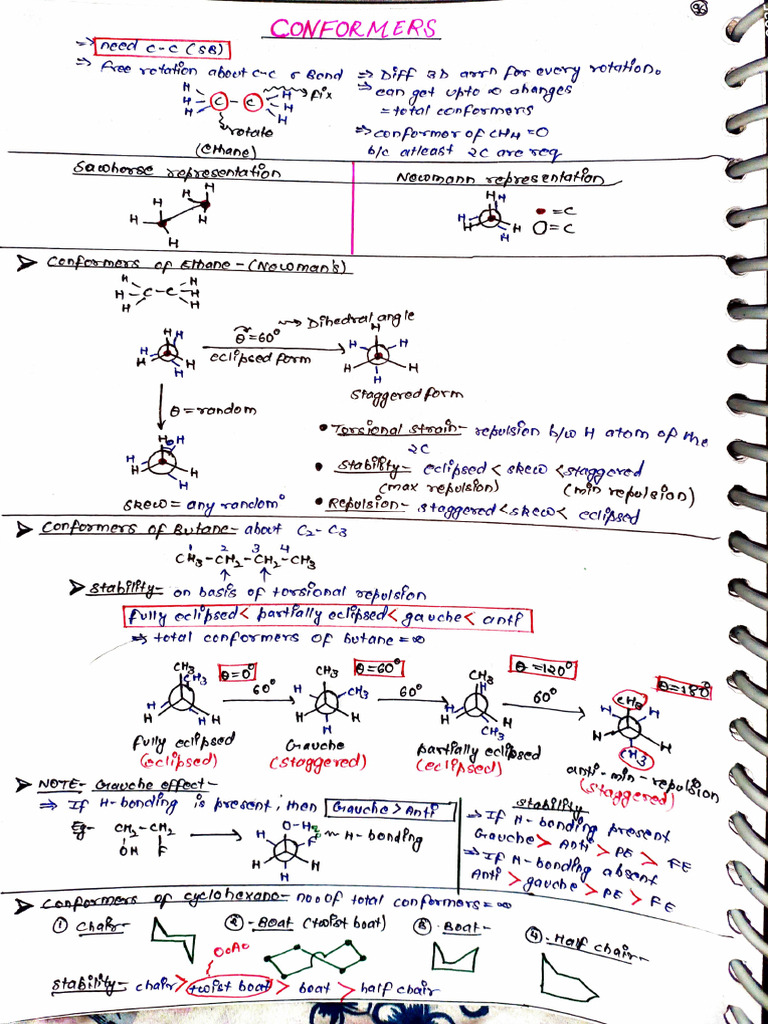 96
CONFORMERS
⇒ need C-C (SB)
⇒ free rotation about C-C σ Bond
⇒ Diff 3D arrn for every rotation.
⇒ can get upto ∞ changes
= total conformers
⇒ conformer of CH4 = 0
b/c atleast 2C are req
H H H C - C H H H
fix
rotate
(Ethane)
Sawhorse representation
Newmann representation
H H H H H H
H H H H H
• = C
O = C
➤ Conformers of Ethane - (Newman's)
H H H C - C H H H
θ = 60° Dihedral angle
eclipsed form
H H H H H
H H H H H H
staggered form
θ = random
H θ H H H H H
skew = any random°
• Torsional strain - repulsion b/w H atom of the
2C
• Stability - eclipsed < skew < staggered
(max repulsion) (min repulsion)
• Repulsion - staggered < skew < eclipsed
➤ Conformers of Butane - about C2-C3
1 2 3 4
CH3-CH2-CH2-CH3
➤ Stability - on basis of torsional repulsion
fully eclipsed < partially eclipsed < gauche < anti
⇒ total conformers of butane = ∞
θ = 0° θ = 60° θ = 120° θ = 180°
60° 60° 60°
CH3 CH3 H H H H
CH3 H CH3 H H H
CH3 H H H H CH3
CH3 H H H H CH3
fully eclipsed
(eclipsed)
Gauche
(staggered)
partially eclipsed
(eclipsed)
anti - min - repulsion
(staggered)
➤ NOTE - Gauche effect -
⇒ If H-bonding is present; then Gauche > Anti
Eg - CH2-CH2
OH F
O-H
H F H H H
H-bonding
stability
⇒ If H-bonding present
Gauche > Anti > PE > FE
⇒ If H-bonding absent
Anti > gauche > PE > FE
➤ Conformers of cyclohexane - no. of total conformers = ∞
① Chair -
② - Boat (twist boat)
③ Boat -
④ - Half chair -
Stability - chair > twist boat > boat > half chair